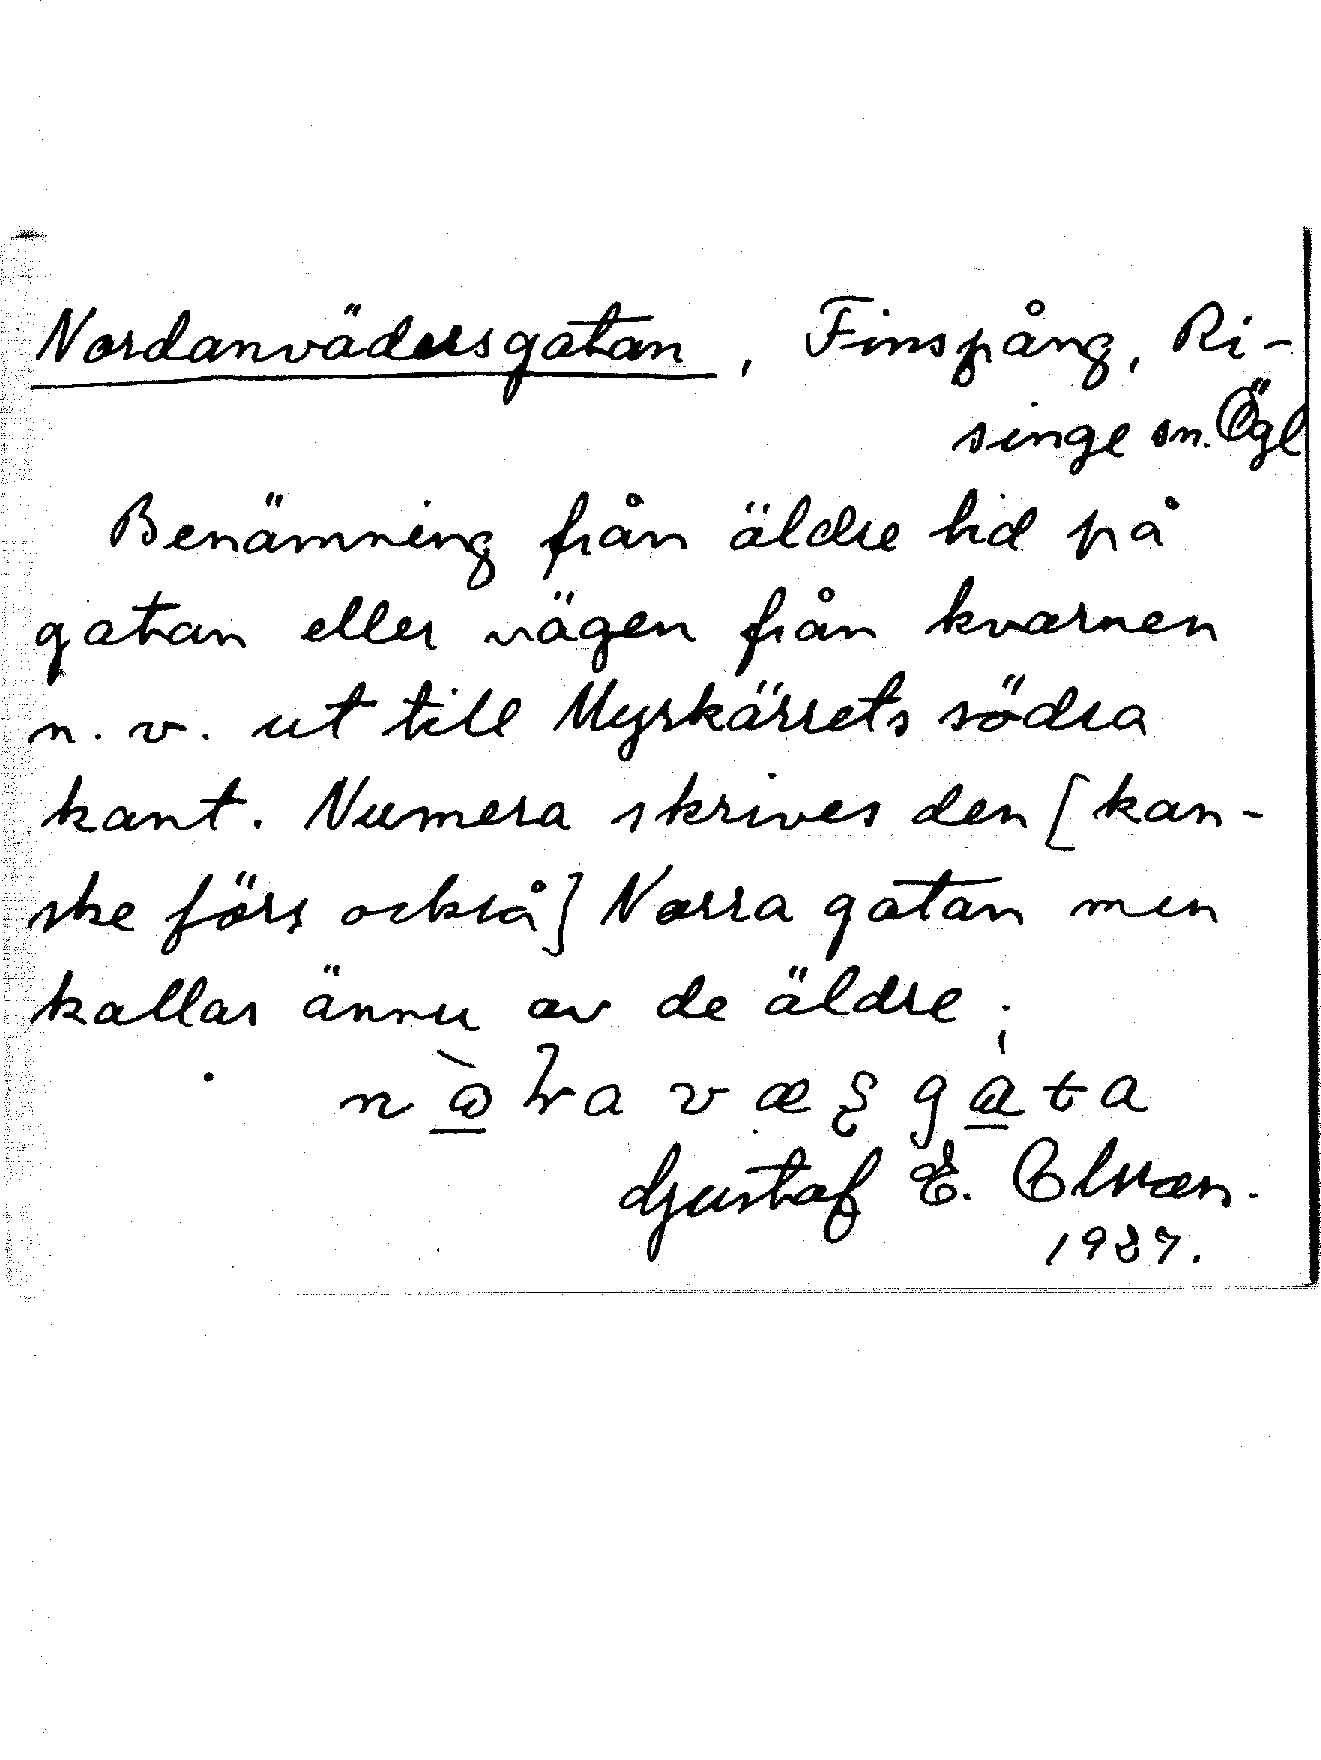 Nordanvädersgatan, Finspång, Ri-
singe sn. Ögl
Benämning från äldre tid på
gatan eller vägen från kvarnen
n. v. ut till Myrkärrets södra
kant. Numera skrives den [kan-
ske förs också] Norra gatan men
kallas ännu av de äldre:
Gustaf E.
1937.